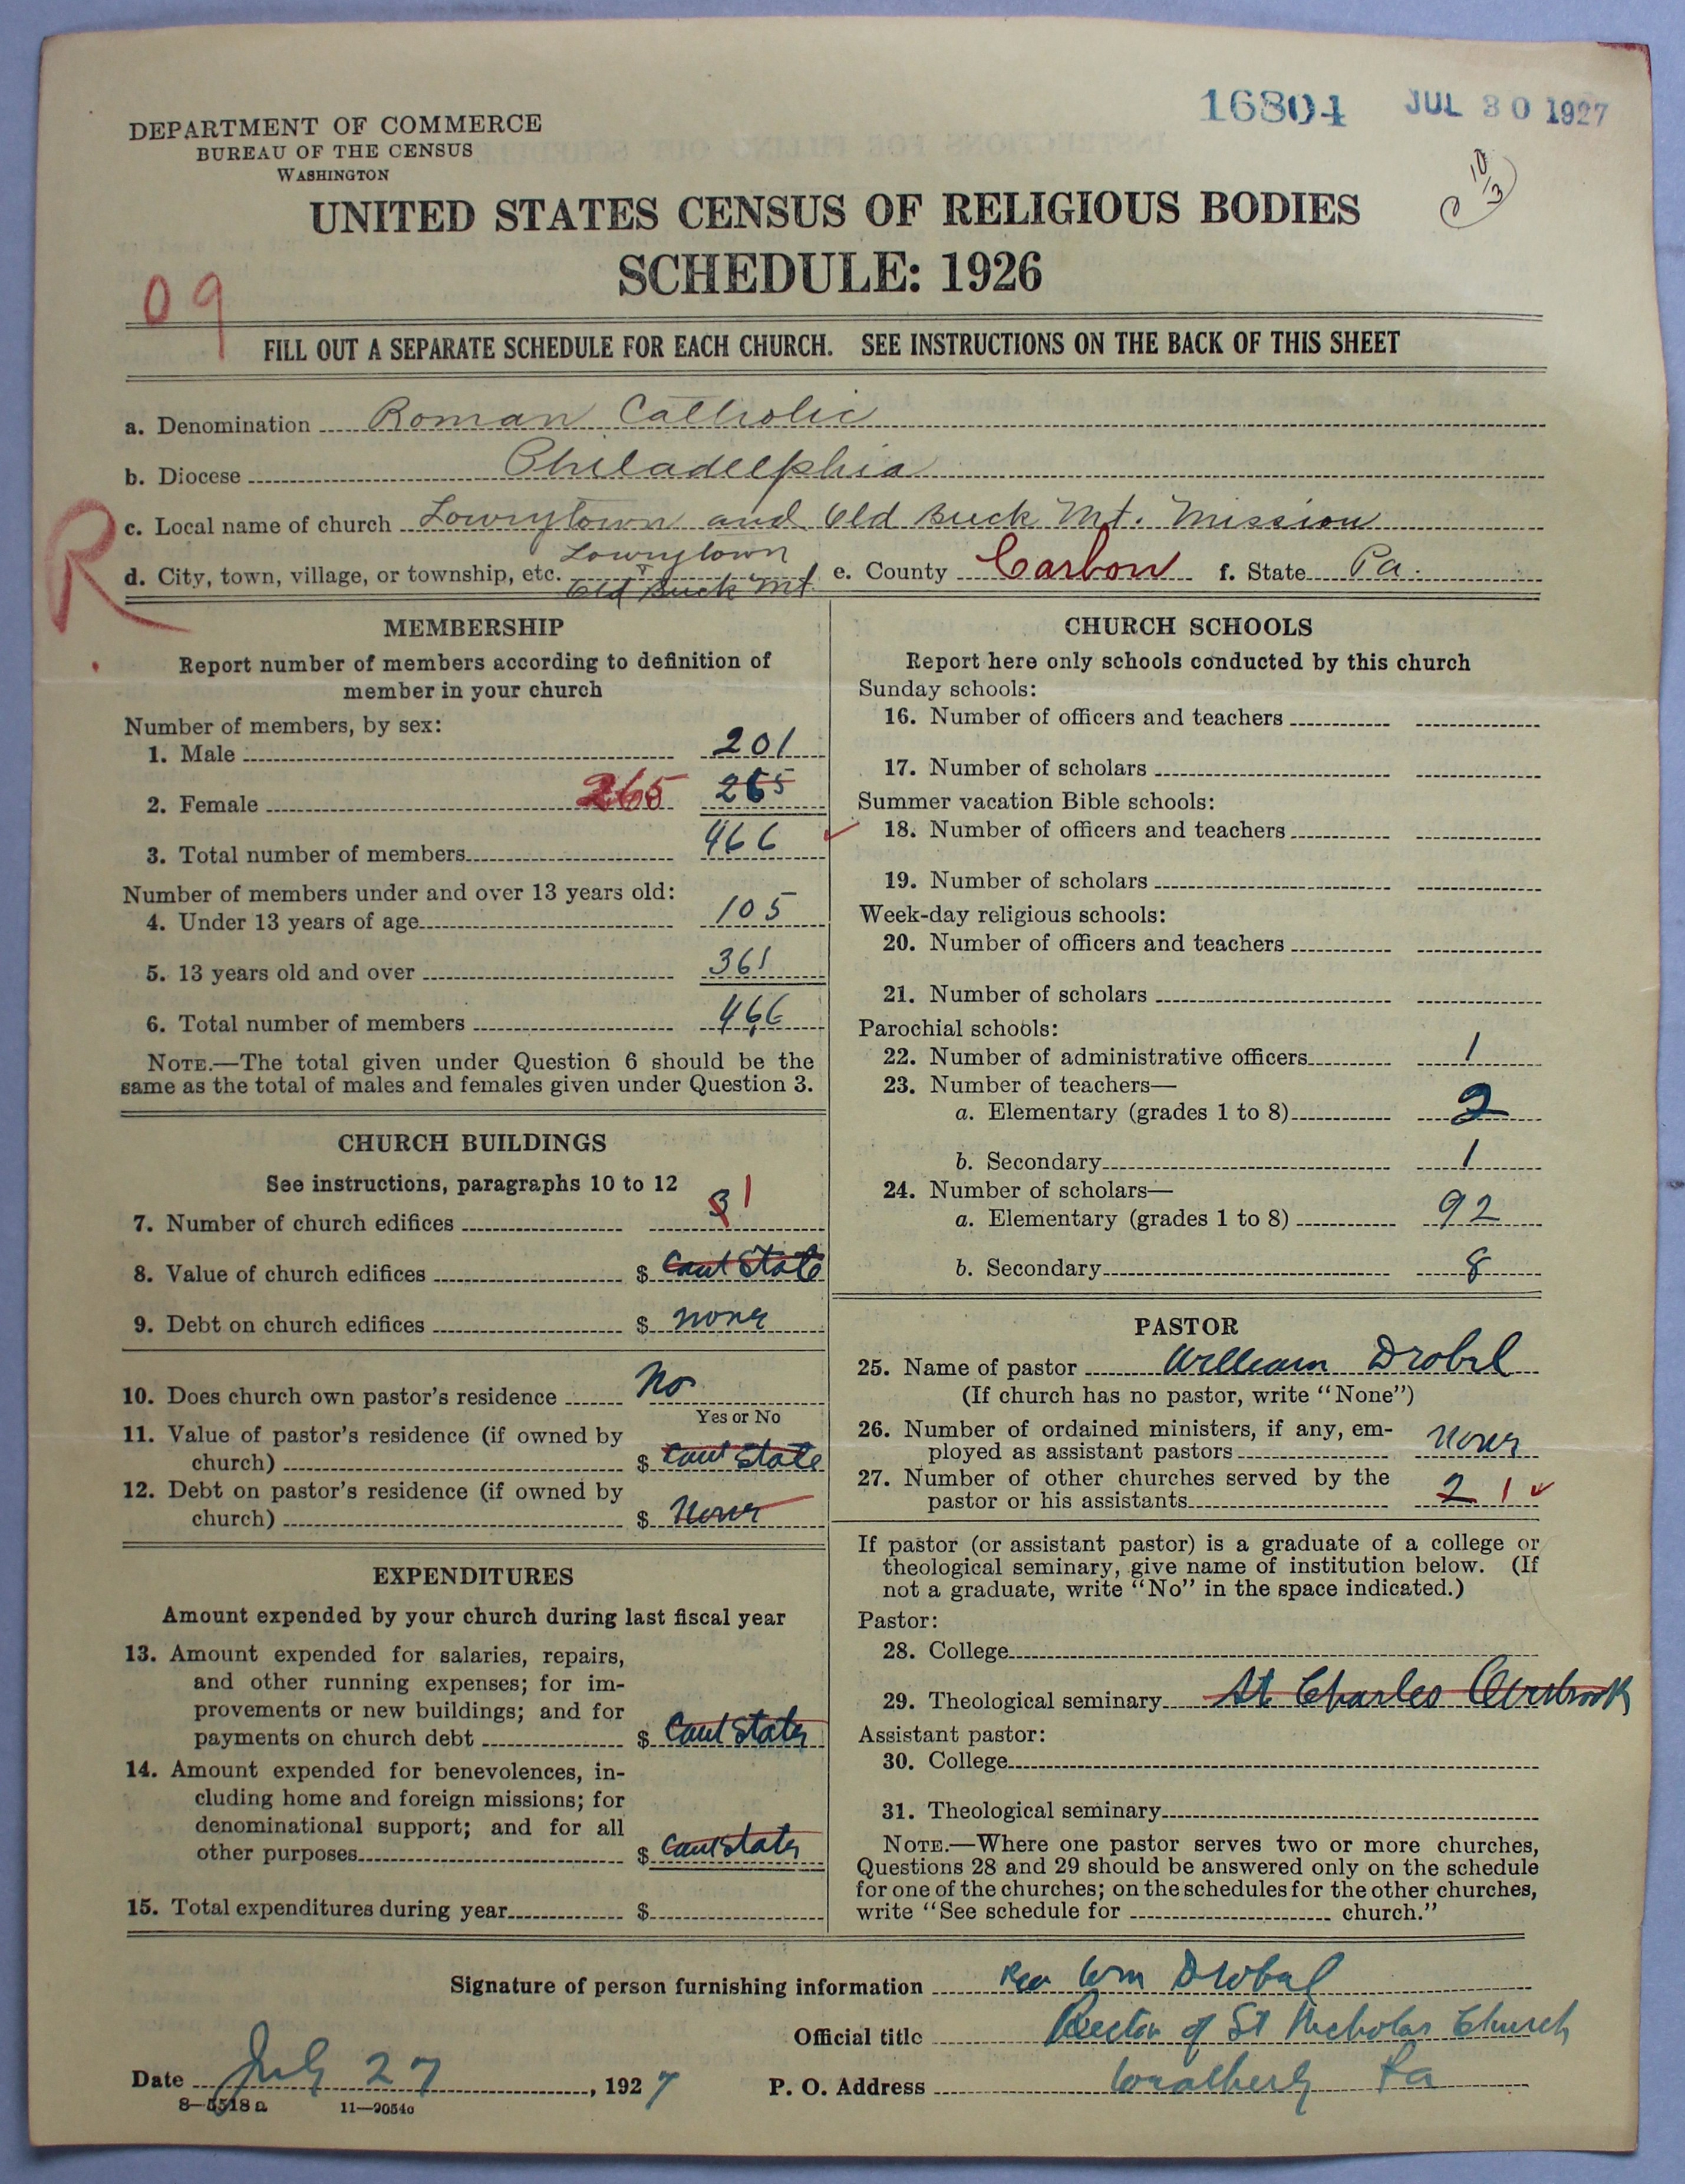 16804 JUL 30 1927
DEPARTMENT OF COMMERCE
BUREAU OF THE CENSUS
WASHINGTON
10/3
UNITED STATES CENSUS OF RELIGIOUS BODIES
SCHEDULE: 1926
09
FILL OUT A SEPARATE SCHEDULE FOR EACH CHURCH. SEE INSTRUCTIONS ON THE BACK OF THIS SHEET
a. Denomination Roman Catholic
b. Diocese Philadelphia
R
c. Local name of church Lowrytown and Old Buck Mt. Mission
d. City, town, village, or township, etc. Lowrytown Old Buck Mt e. County Carbon f. State Pa.
MEMBERSHIP
Report number of members according to definition of
member in your church
Number of members, by sex:
1. Male 201
2. Female 265 265
3. Total number of members 466
Number of members under and over 13 years old:
4. Under 13 years of age 105
5. 13 years old and over 361
6. Total number of members 466
NOTE.—The total given under Question 6 should be the
same as the total of males and females given under Question 3.
CHURCH BUILDINGS
See instructions, paragraphs 10 to 12
7. Number of church edifices 3 1
8. Value of church edifices $ Cant State
9. Debt on church edifices $ none
10. Does church own pastor's residence No
Yes or No
11. Value of pastor's residence (if owned by
church) $ Cant State
12. Debt on pastor's residence (if owned by
church) $ None
EXPENDITURES
Amount expended by your church during last fiscal year
13. Amount expended for salaries, repairs,
and other running expenses; for im-
provements or new buildings; and for
payments on church debt $ Cant State
14. Amount expended for benevolences, in-
cluding home and foreign missions; for
denominational support; and for all
other purposes $ Cant State
15. Total expenditures during year $
CHURCH SCHOOLS
Report here only schools conducted by this church
Sunday schools:
16. Number of officers and teachers
17. Number of scholars
Summer vacation Bible schools:
18. Number of officers and teachers
19. Number of scholars
Week-day religious schools:
20. Number of officers and teachers
21. Number of scholars
Parochial schools:
22. Number of administrative officers 1
23. Number of teachers—
a. Elementary (grades 1 to 8) 2
b. Secondary 1
24. Number of scholars—
a. Elementary (grades 1 to 8) 92
b. Secondary 8
PASTOR
25. Name of pastor William Drobel
(If church has no pastor, write "None")
26. Number of ordained ministers, if any, em-
ployed as assistant pastors None
27. Number of other churches served by the
pastor or his assistants 2 1
If pastor (or assistant pastor) is a graduate of a college or
theological seminary, give name of institution below. (If
not a graduate, write "No" in the space indicated.)
Pastor:
28. College
29. Theological seminary St Charles Overbrook
Assistant pastor:
30. College
31. Theological seminary
NOTE.—Where one pastor serves two or more churches,
Questions 28 and 29 should be answered only on the schedule
for one of the churches; on the schedules for the other churches,
write "See schedule for church."
Signature of person furnishing information Rev Wm Drobel
Official title Rector of St Nicholas Church
Date July 27, 1927 P. O. Address Weatherly Pa
8—5518 a 11—9054c